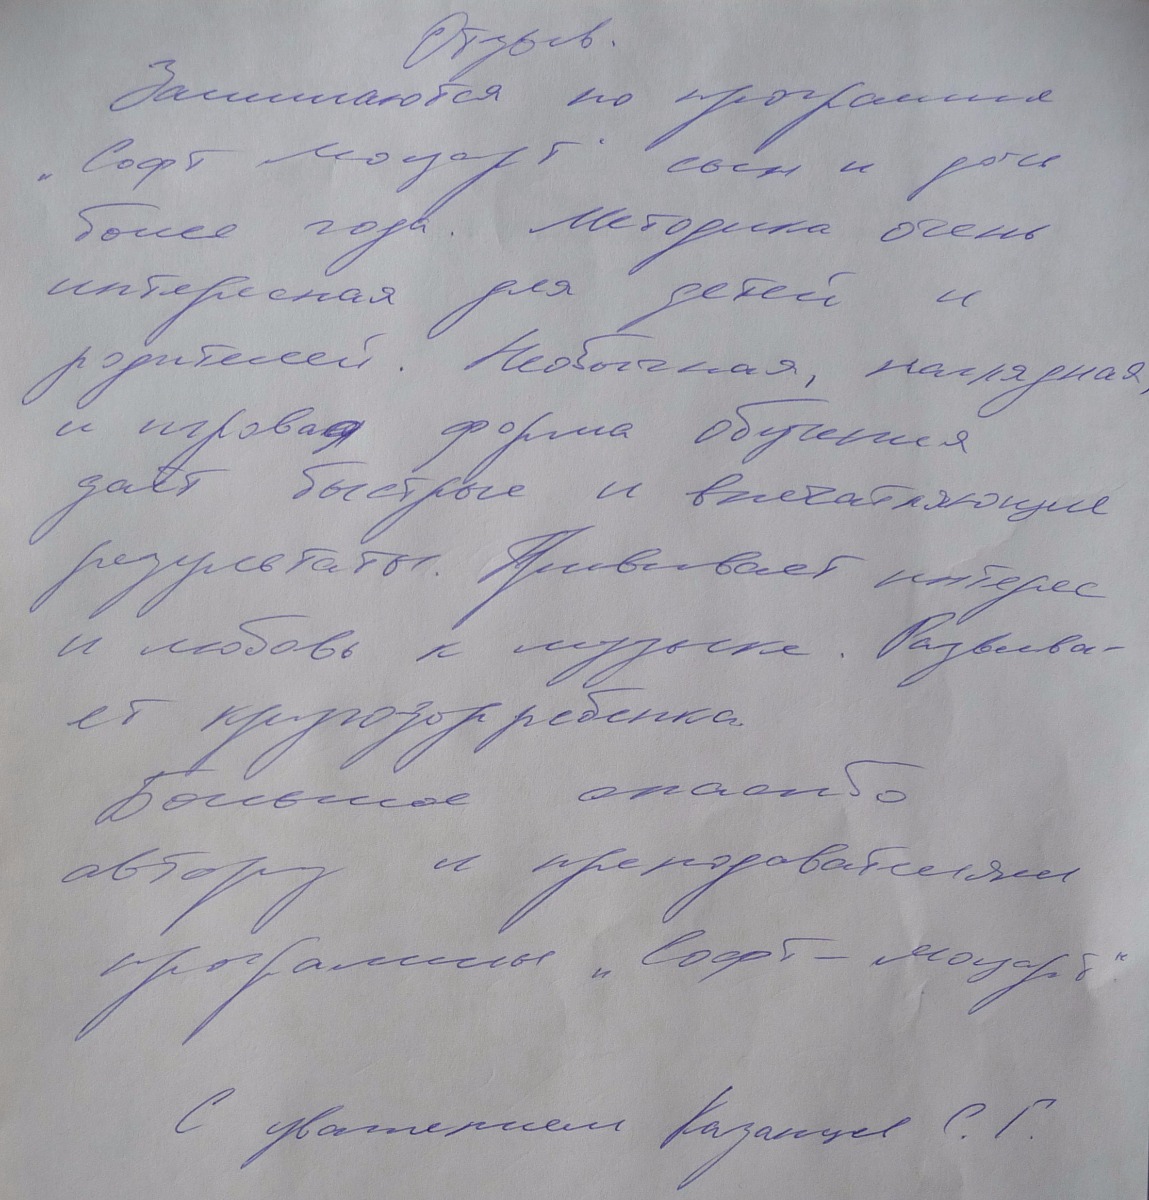 Отзыв.
Занимаются по программе
„Софт Моцарт" сын и дочь
более года. Методика очень
интересная для детей и
родителей. Необычная, наглядная,
и игровая форма обучения
даёт быстрые и впечатляющие
результаты. Прививает интерес
и любовь к музыке. Развива-
ет кругозор ребенка.
Большое спасибо
автору и преподавателям
программы „Софт-Моцарт"
С уважением Казанцев С. Г.